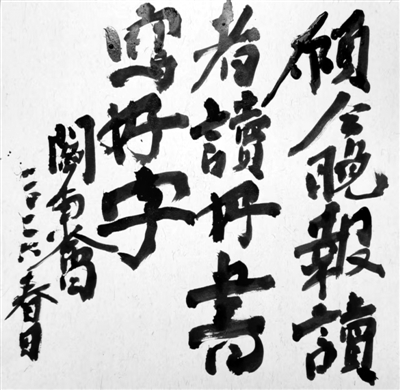 願今晚報讀
者讀好書
寫好字
二〇一六春日